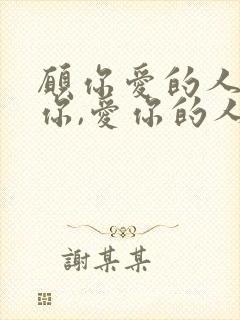 願你愛的人
你,愛你的人
謝某某